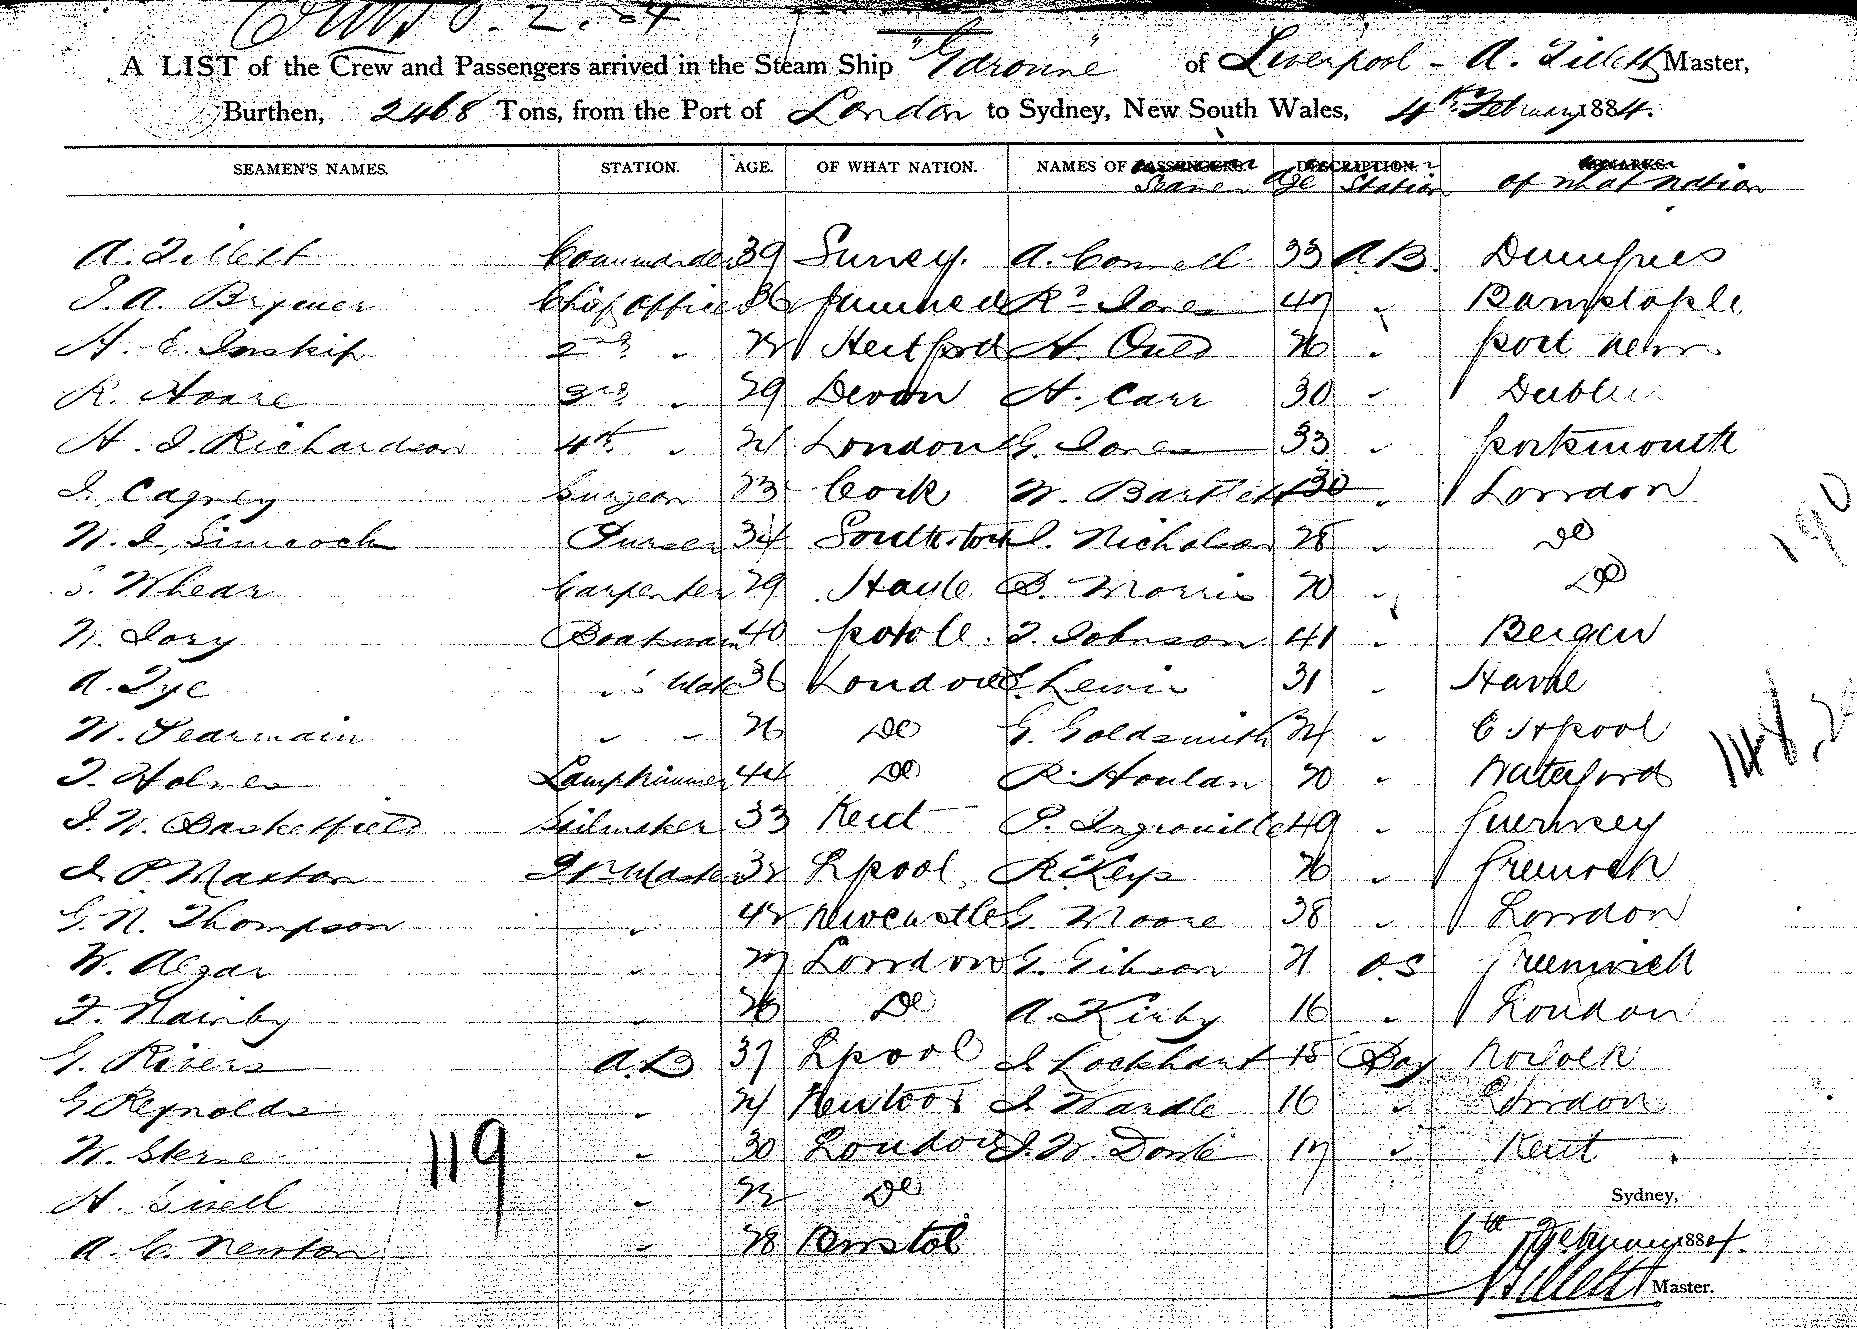 A LIST of the Crew and Passengers arrived in the Steam Ship "Garonne" of Liverpool - A. Tillett Master,
Burthen, 2468 Tons, from the Port of London to Sydney, New South Wales, 4th February 1884.
SEAMEN'S NAMES. STATION. AGE. OF WHAT NATION. NAMES OF PASSENGERS. DESCRIPTION. REMARKS.
Seamen Age Station of what Nation
A. Tillett Commander 39 Surrey. A. Connell 33 A.B. Dumfries
J. A. Brymer Chief Office 36 R. Jones 47 " Barnstaple
H. E. Inskip 2nd " Hertford H. 26 "
R. Hoare 3rd " 29 Devon H. Carr 30 " Dublin
H. J. Richardson 4th " 24 London G. Jones 33 " Portsmouth
J. Cagney Surgeon 23 Cork W. Bartlett 30 " London
W. J. Simcock Purser 34 J. Nicholson 28 " Do
Whear Carpenter 29 Hayle Morris 20 " Do
W. Jory Boatswain 40 J. Johnson 41 " Bergen
A. Tye " Mate 36 London Lewis 31 " Havre
W. Pearmain " " 26 Do G. Goldsmith 24 "
T. Holmes Lamptrimmer 44 Do R. Houlan 20 " Waterford
J. W. Basketfield Sailmaker 33 Kent P. Ingrouille 49 " Guernsey
J. P. Maxton Qr Master 32 Lpool R. Keys 26 " Greenock
G. N. Thompson " 42 Newcastle G. Moore 38 " London
W. Algar " 27 London G. Gibson 21 O.S Greenwich
F. Nainby " 26 Do A. Kirby 16 " London
G. Rivers A.B 37 Lpool J. Lockhart 15 Boy Norfolk
G Reynolds " 24 J. Wardle 16 " London
W. Sterne " 30 London J. W. 17 " Kent
H. " 22 Do
A. C. Newton " 28 Bristol
119
190
Sydney,
6th February 1884.
Tillett Master.